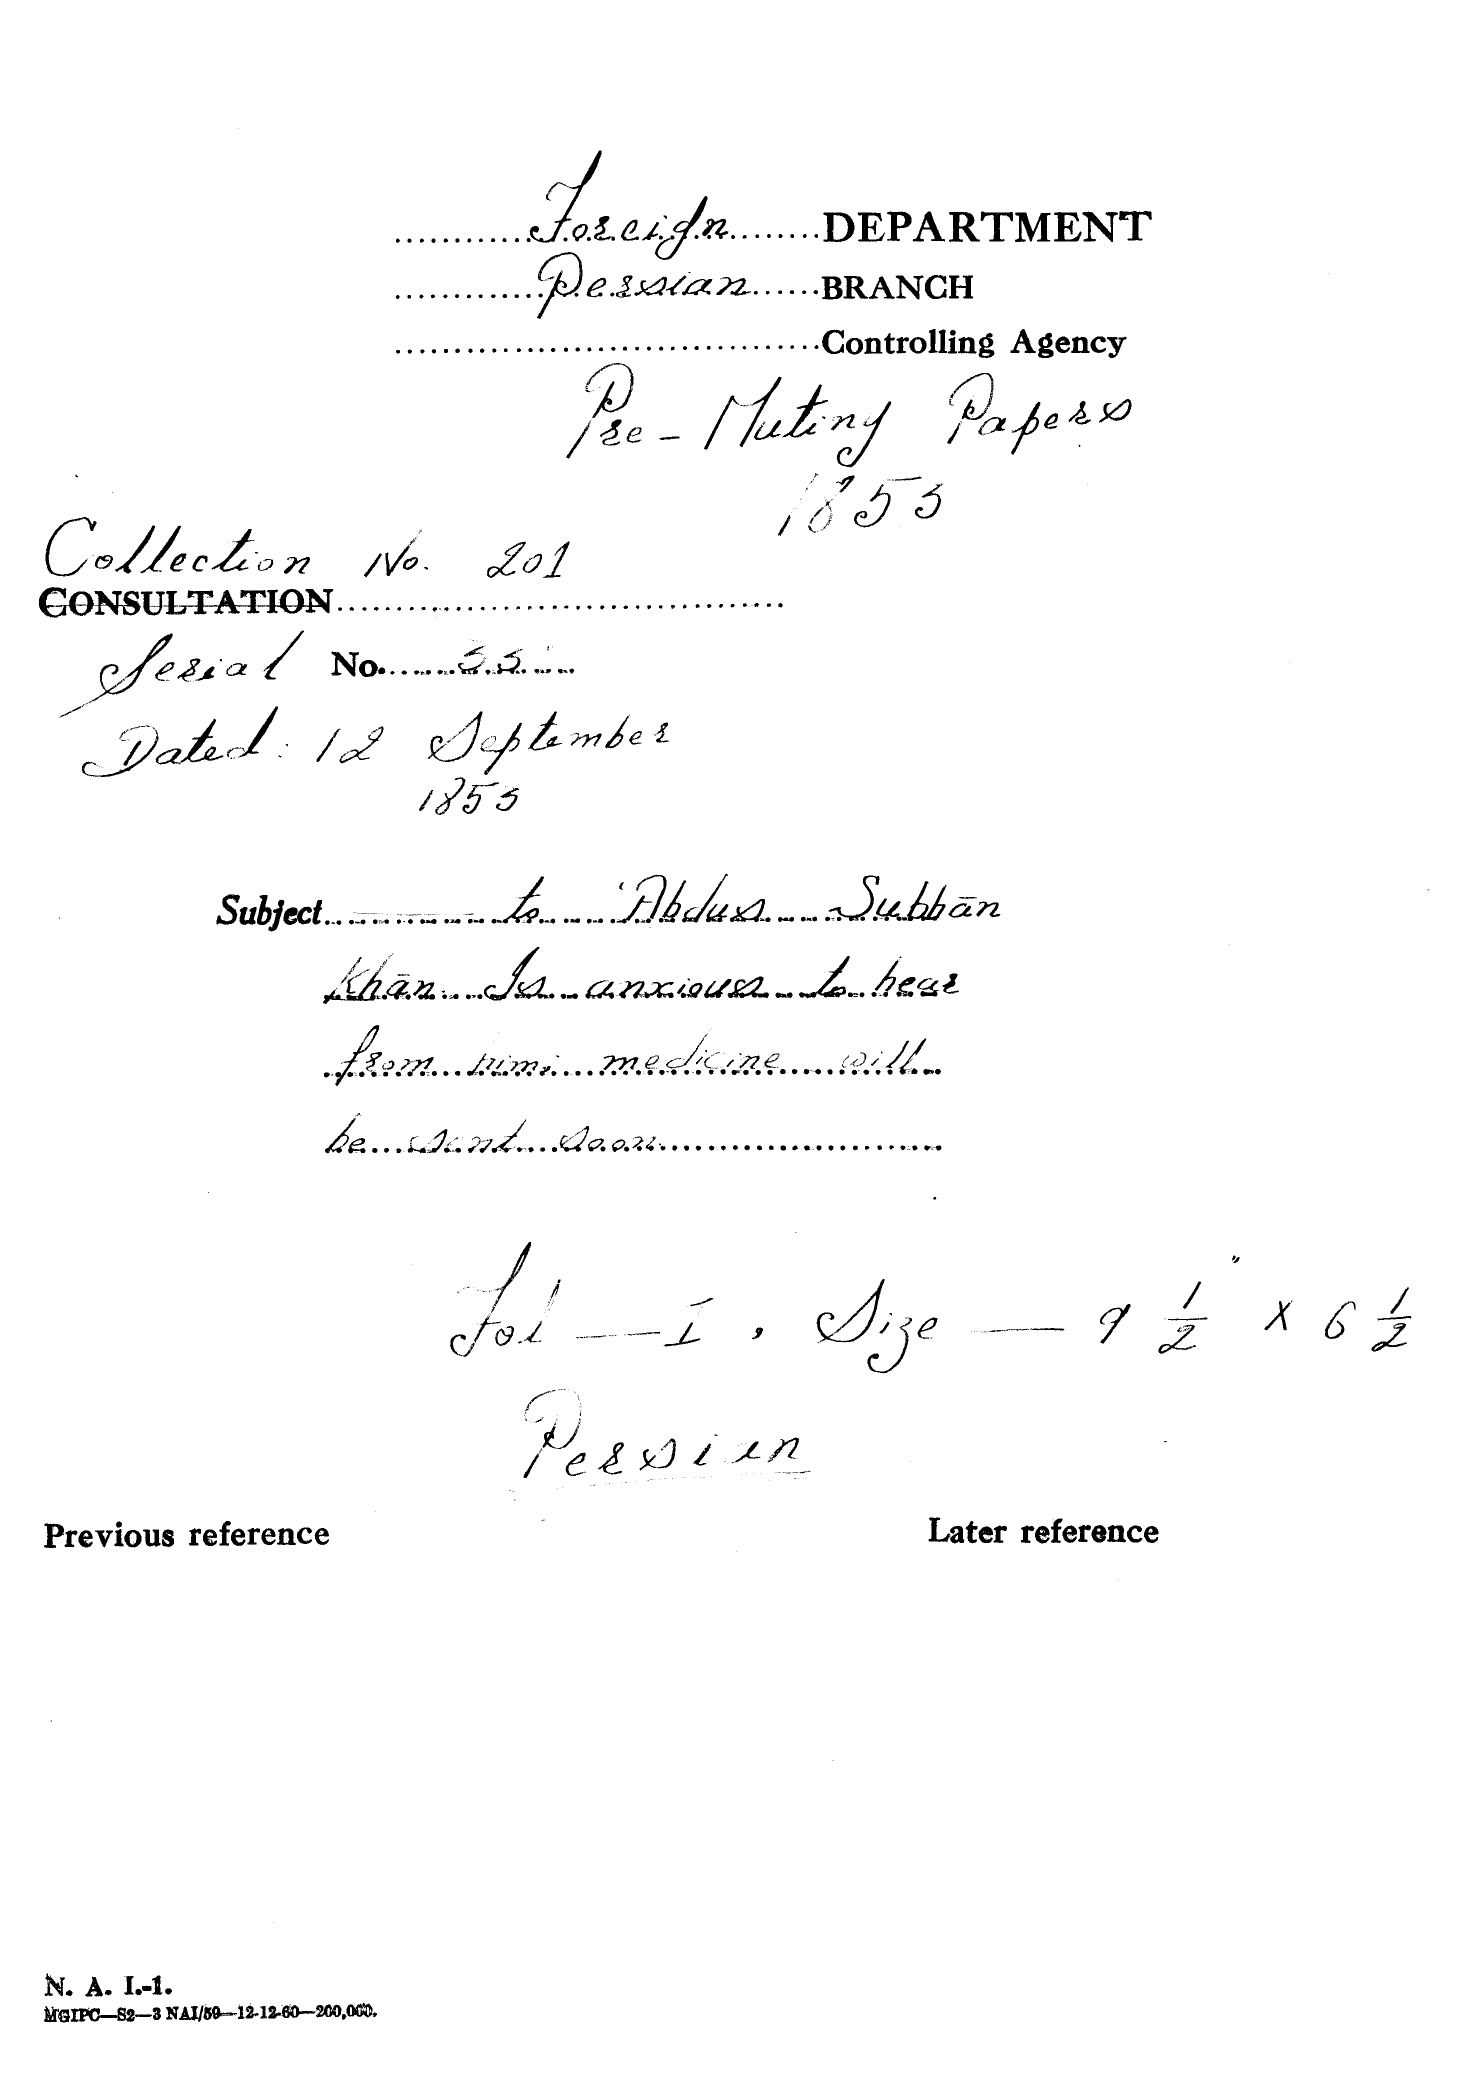 Foreign DEPARTMENT
Persian BRANCH
Controlling Agency
Pre-Mutiny Papers
1853
Collection No. 201
CONSULTATION
Serial No. 33
Dated: 12 September
1853
Subject to 'Abdus Subhān
Khān Is anxious to hear
from him; medicine will
be sent soon
Fol — I, Size — 9 1/2" X 6 1/2
Persian
Previous reference Later reference
N. A. I.-1.
MGIPC—S2—3 NAI/59—12-12-60—200,000.